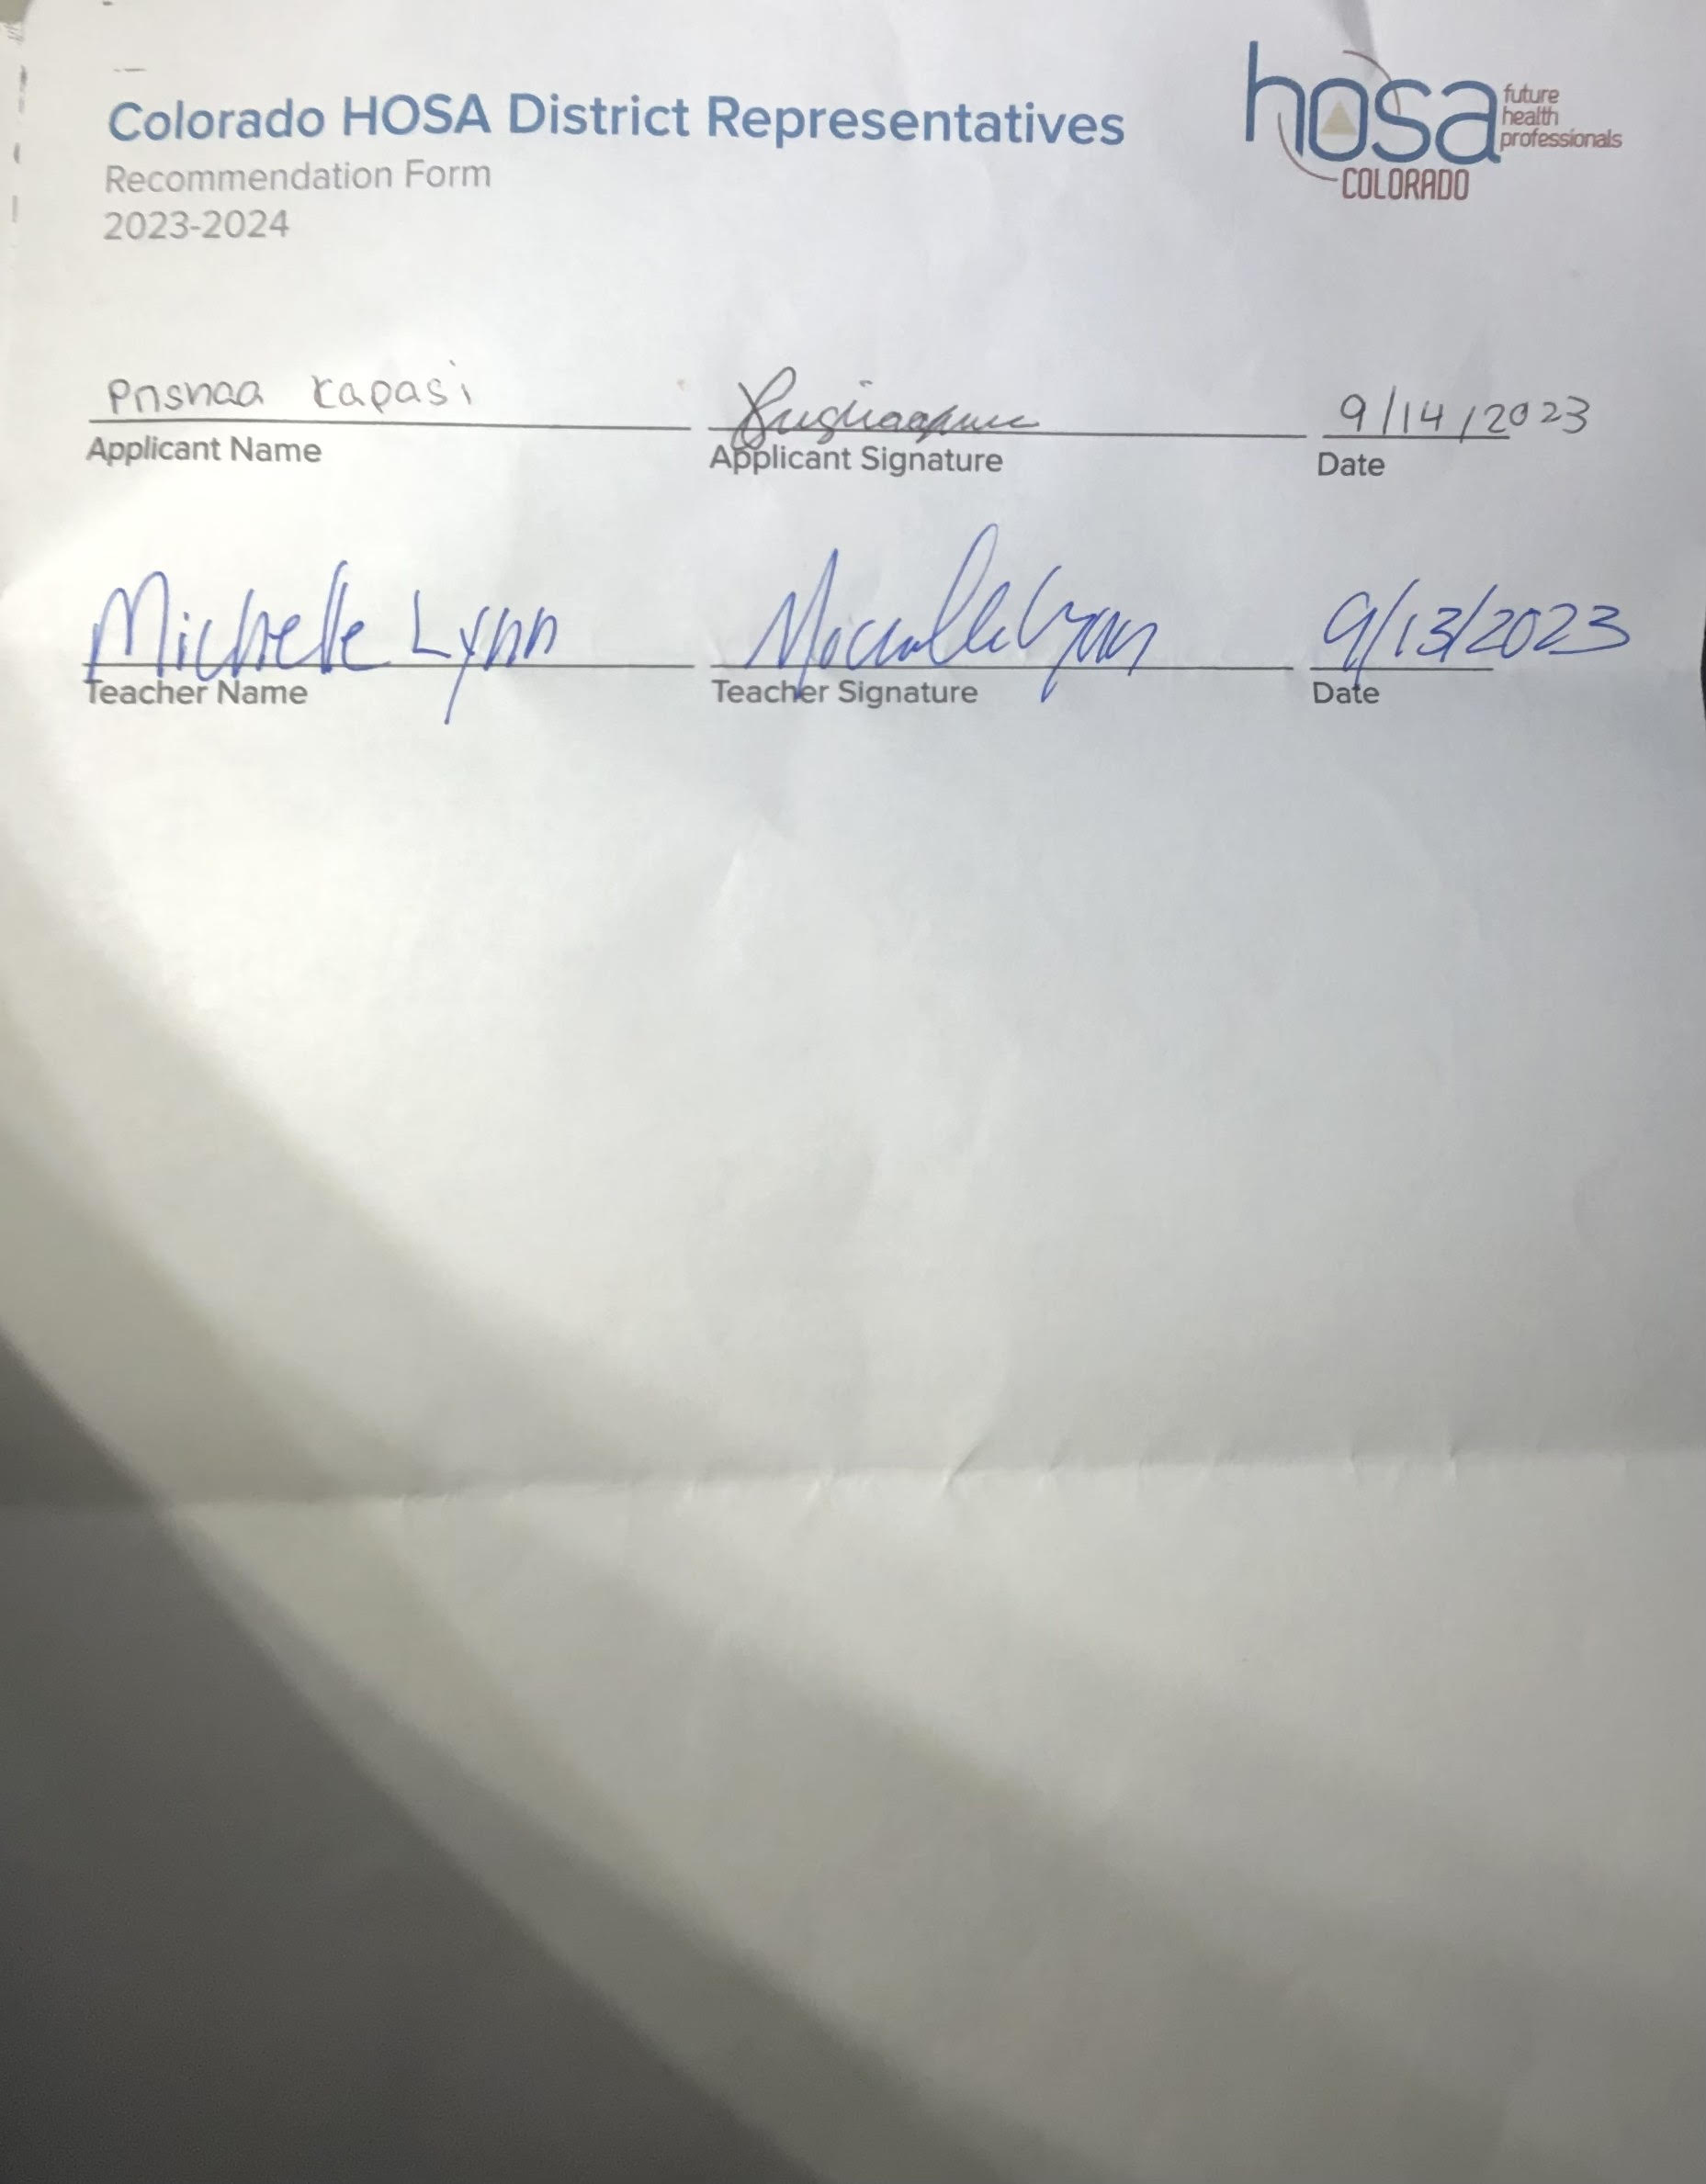 Colorado HOSA District Representatives
Recommendation Form
2023-2024
hosa
future
health
professionals
COLORADO
Kapasi 9/14/2023
Applicant Name Applicant Signature Date
Michelle Lynn Michelle Lynn 9/13/2023
Teacher Name Teacher Signature Date